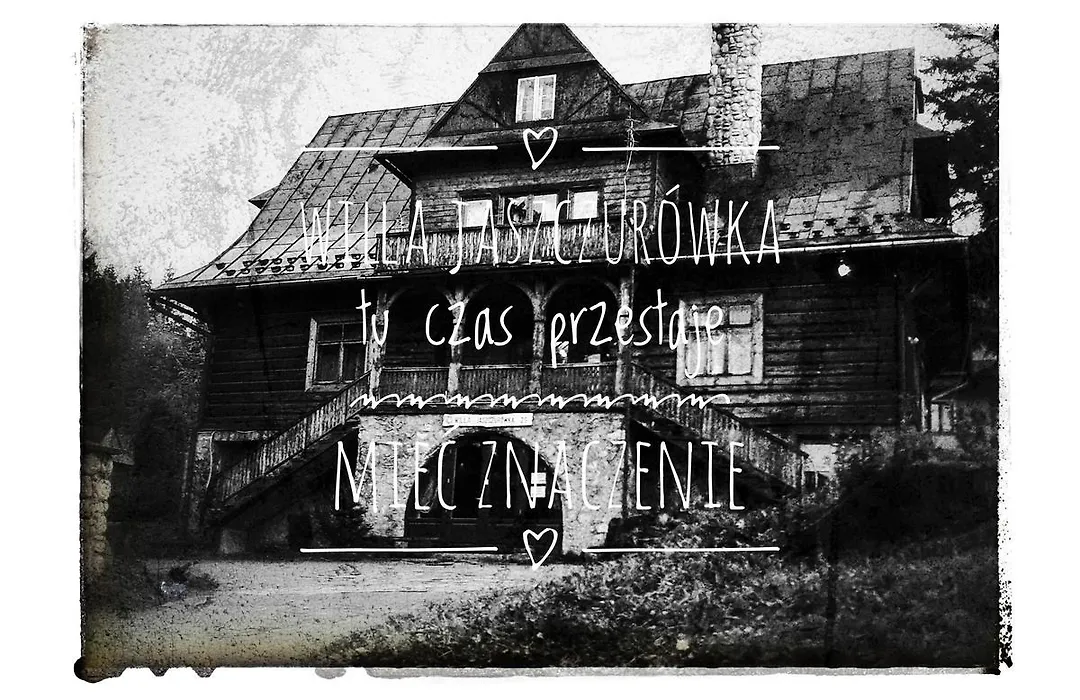 WILLA JASZCZURÓWKA
tu czas przestaje
MIEĆ ZNACZENIE